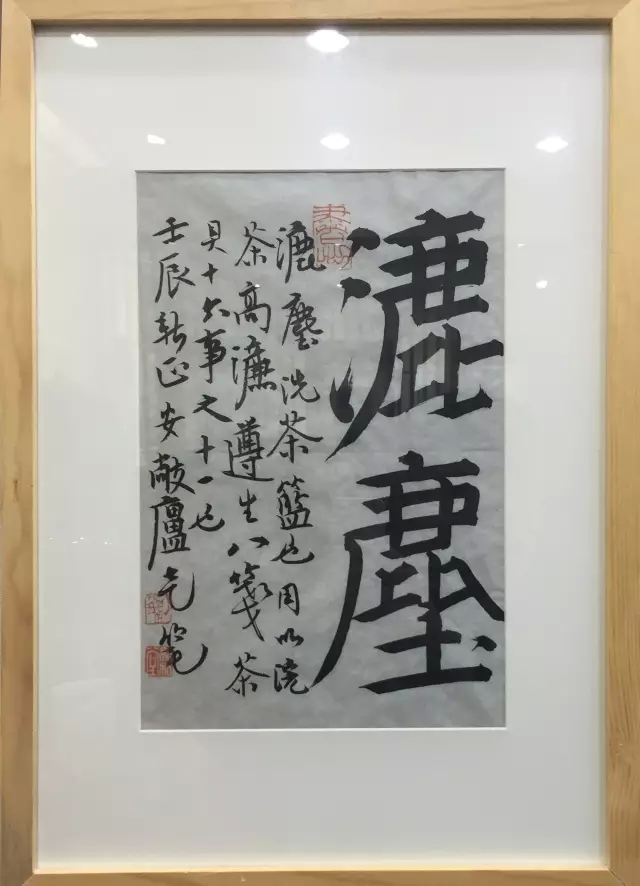 漉塵
漉塵洗茶籃也用以浣
茶高濂遵生八箋茶
具十六事之十一也
壬辰新正安廬